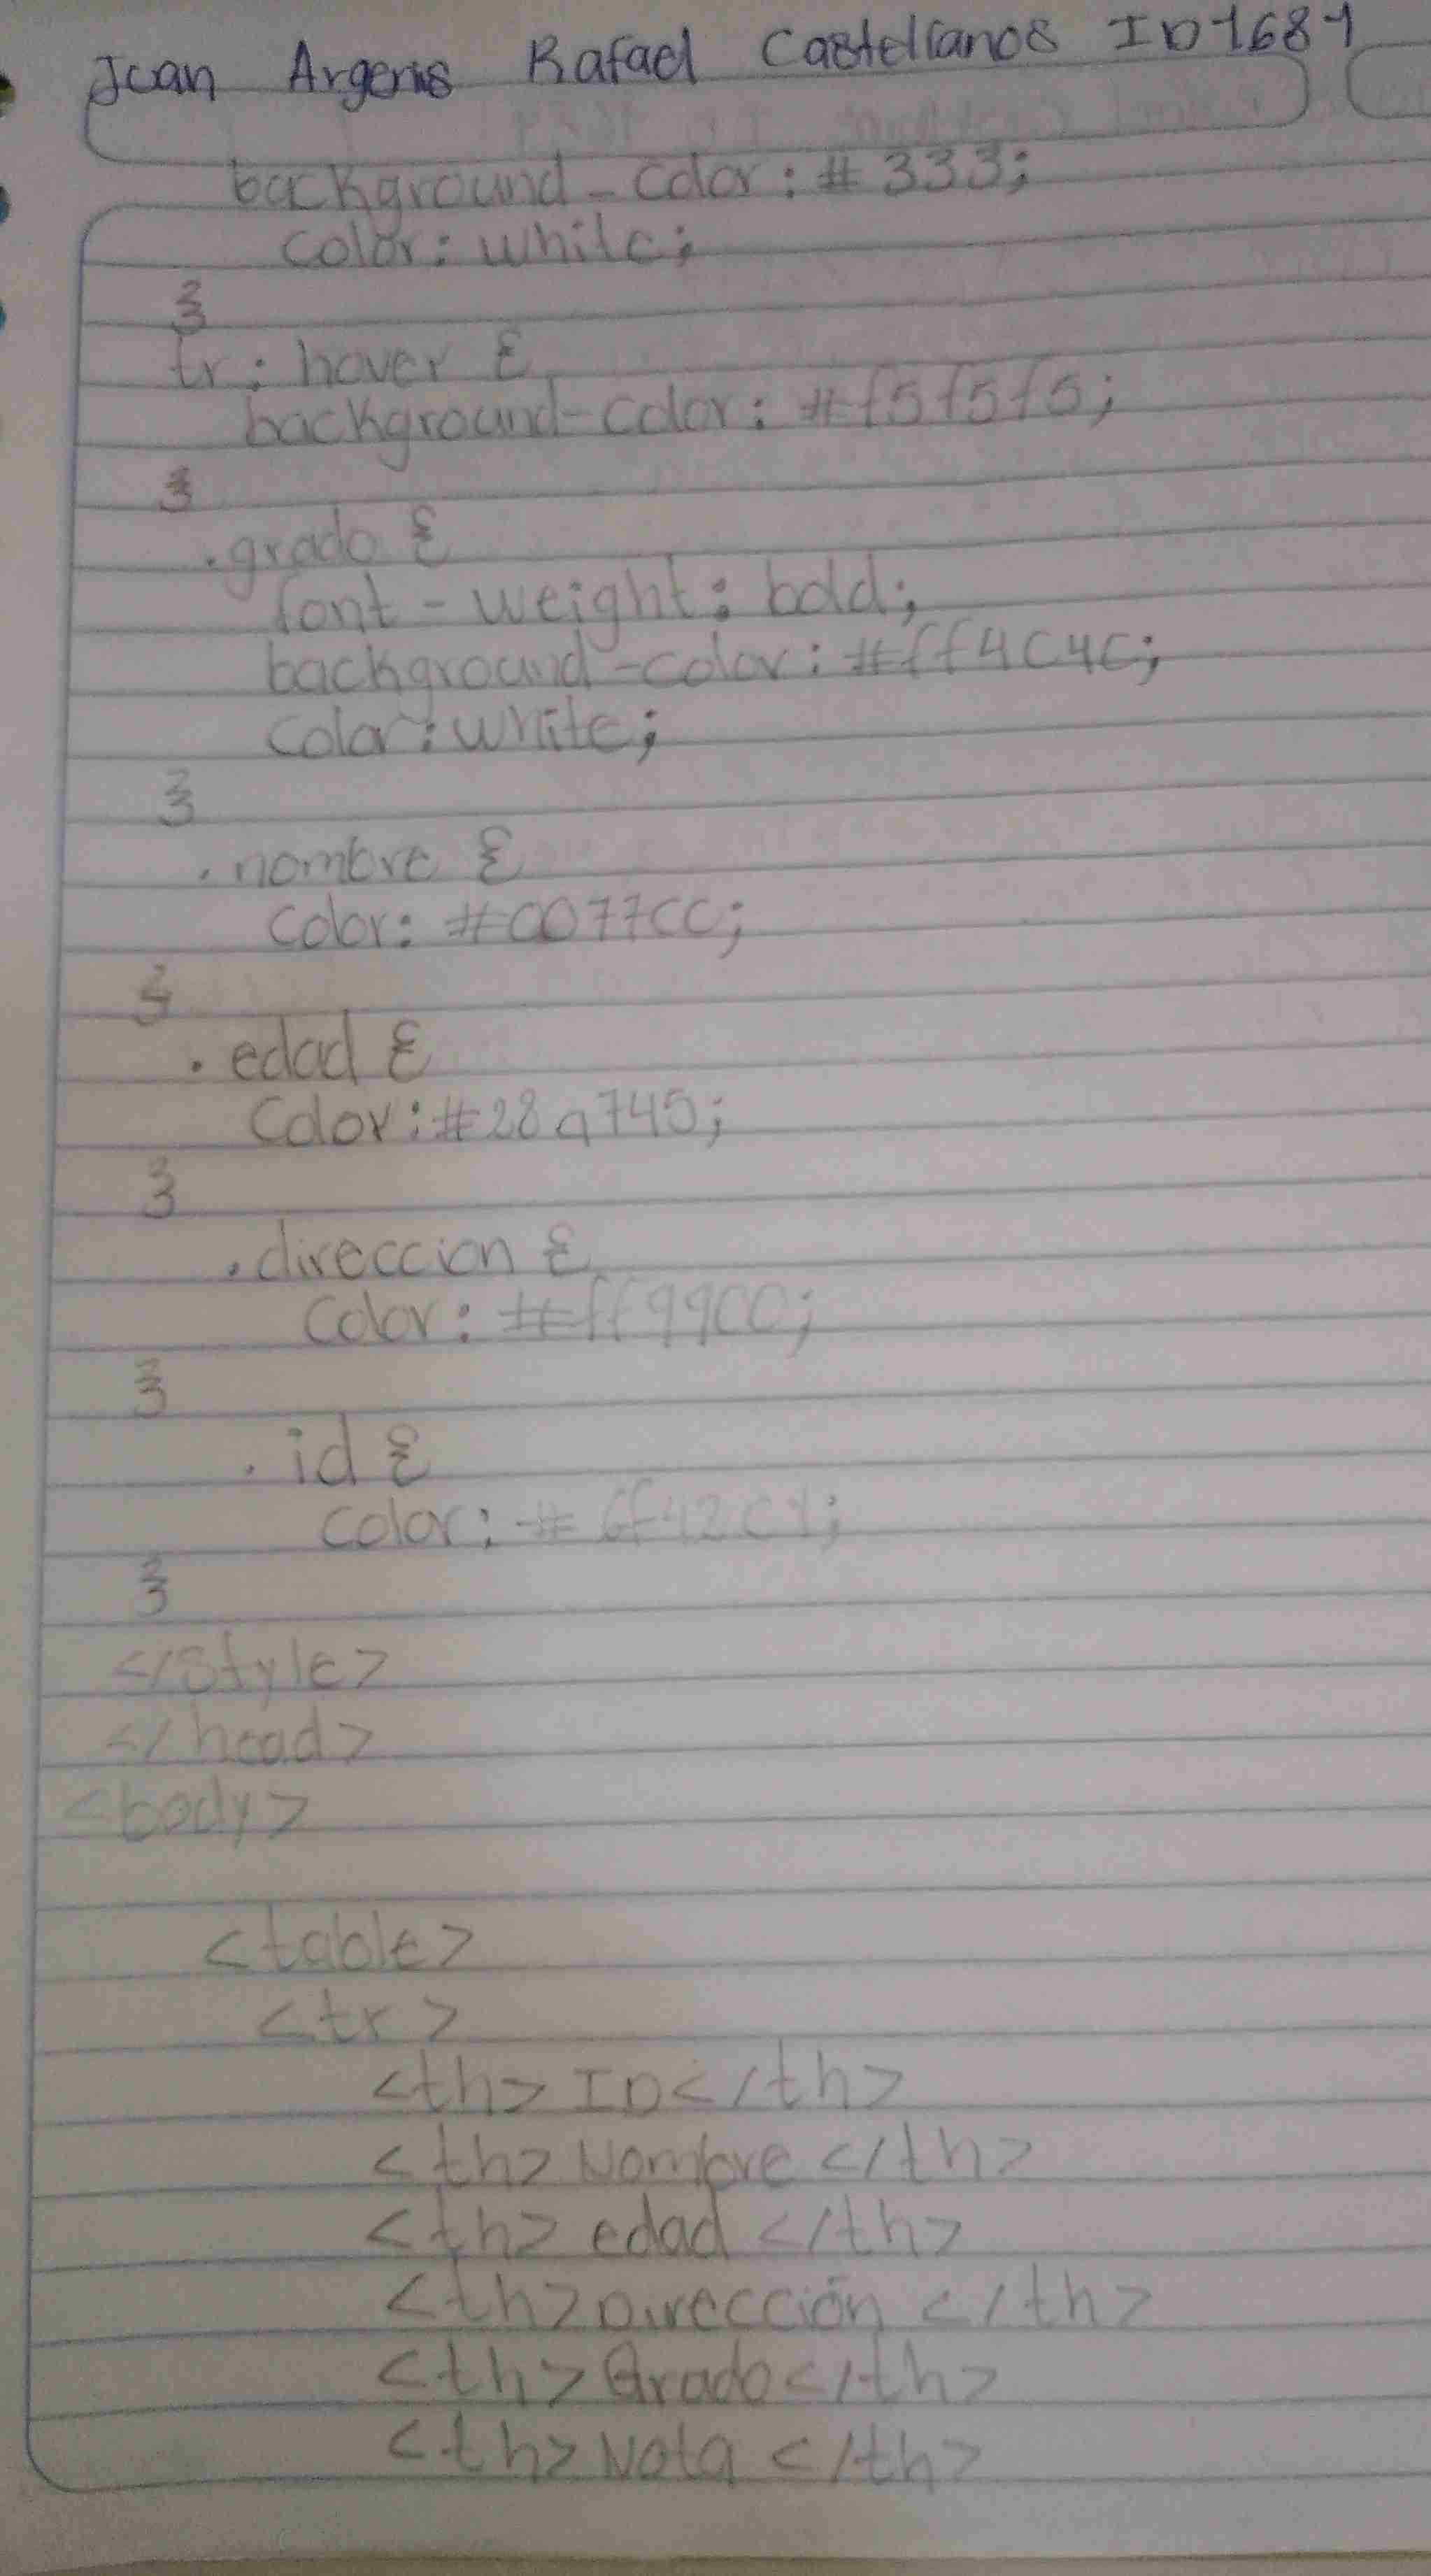 Juan Argenis Rafael Castellanos ID 1681
background-color: #333;
color: white;
}
tr: hover {
background-color: #f5f5f5;
}
.grado {
font-weight: bold;
background-color: #ff4c4c;
color: white;
}
.nombre {
color: #0077CC;
}
.edad {
Color: #28a745;
}
.direccion {
color: #ff99CC;
}
.id {
color: #6f42C1;
}
</style>
</head>
<body>
<table>
<tr>
<th>ID</th>
<th>Nombre</th>
<th>edad</th>
<th>Dirección</th>
<th>Grado</th>
<th>Nota</th>